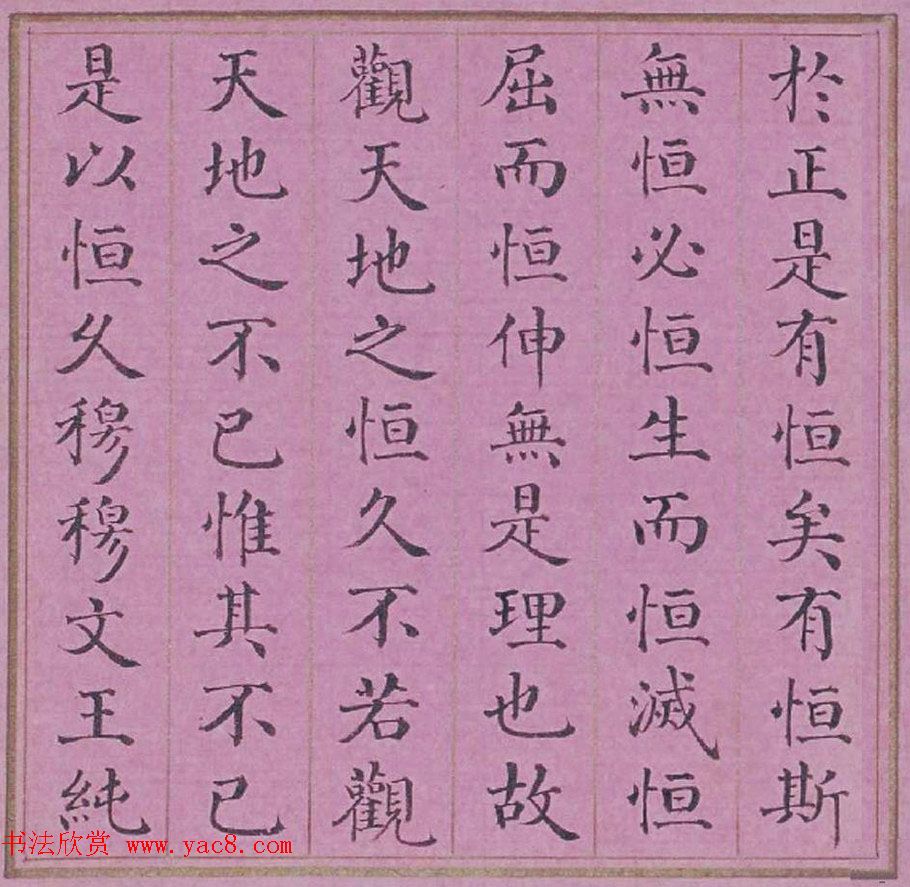 於正是有恒矣有恒斯
無恒必恒生而恒滅恒
屈而恒伸無是理也故
觀天地之恒久不若觀
天地之不已惟其不已
是以恒久穆穆文王純
书法欣赏 www.yac8.com